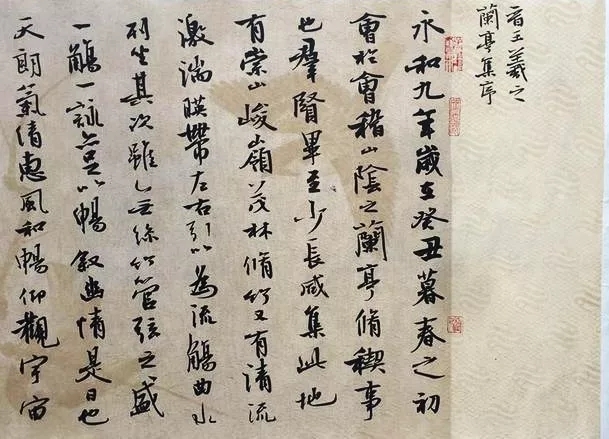 晉王羲之
蘭亭集序
永和九年歲在癸丑暮春之初
會於會稽山陰之蘭亭脩稧事
也羣賢畢至少長咸集此地
有崇山峻嶺茂林脩竹又有清流
激湍暎帶左右引以為流觴曲水
列坐其次雖無絲竹管弦之盛
一觴一詠亦足以暢敘幽情是日也
天朗氣清惠風和暢仰觀宇宙